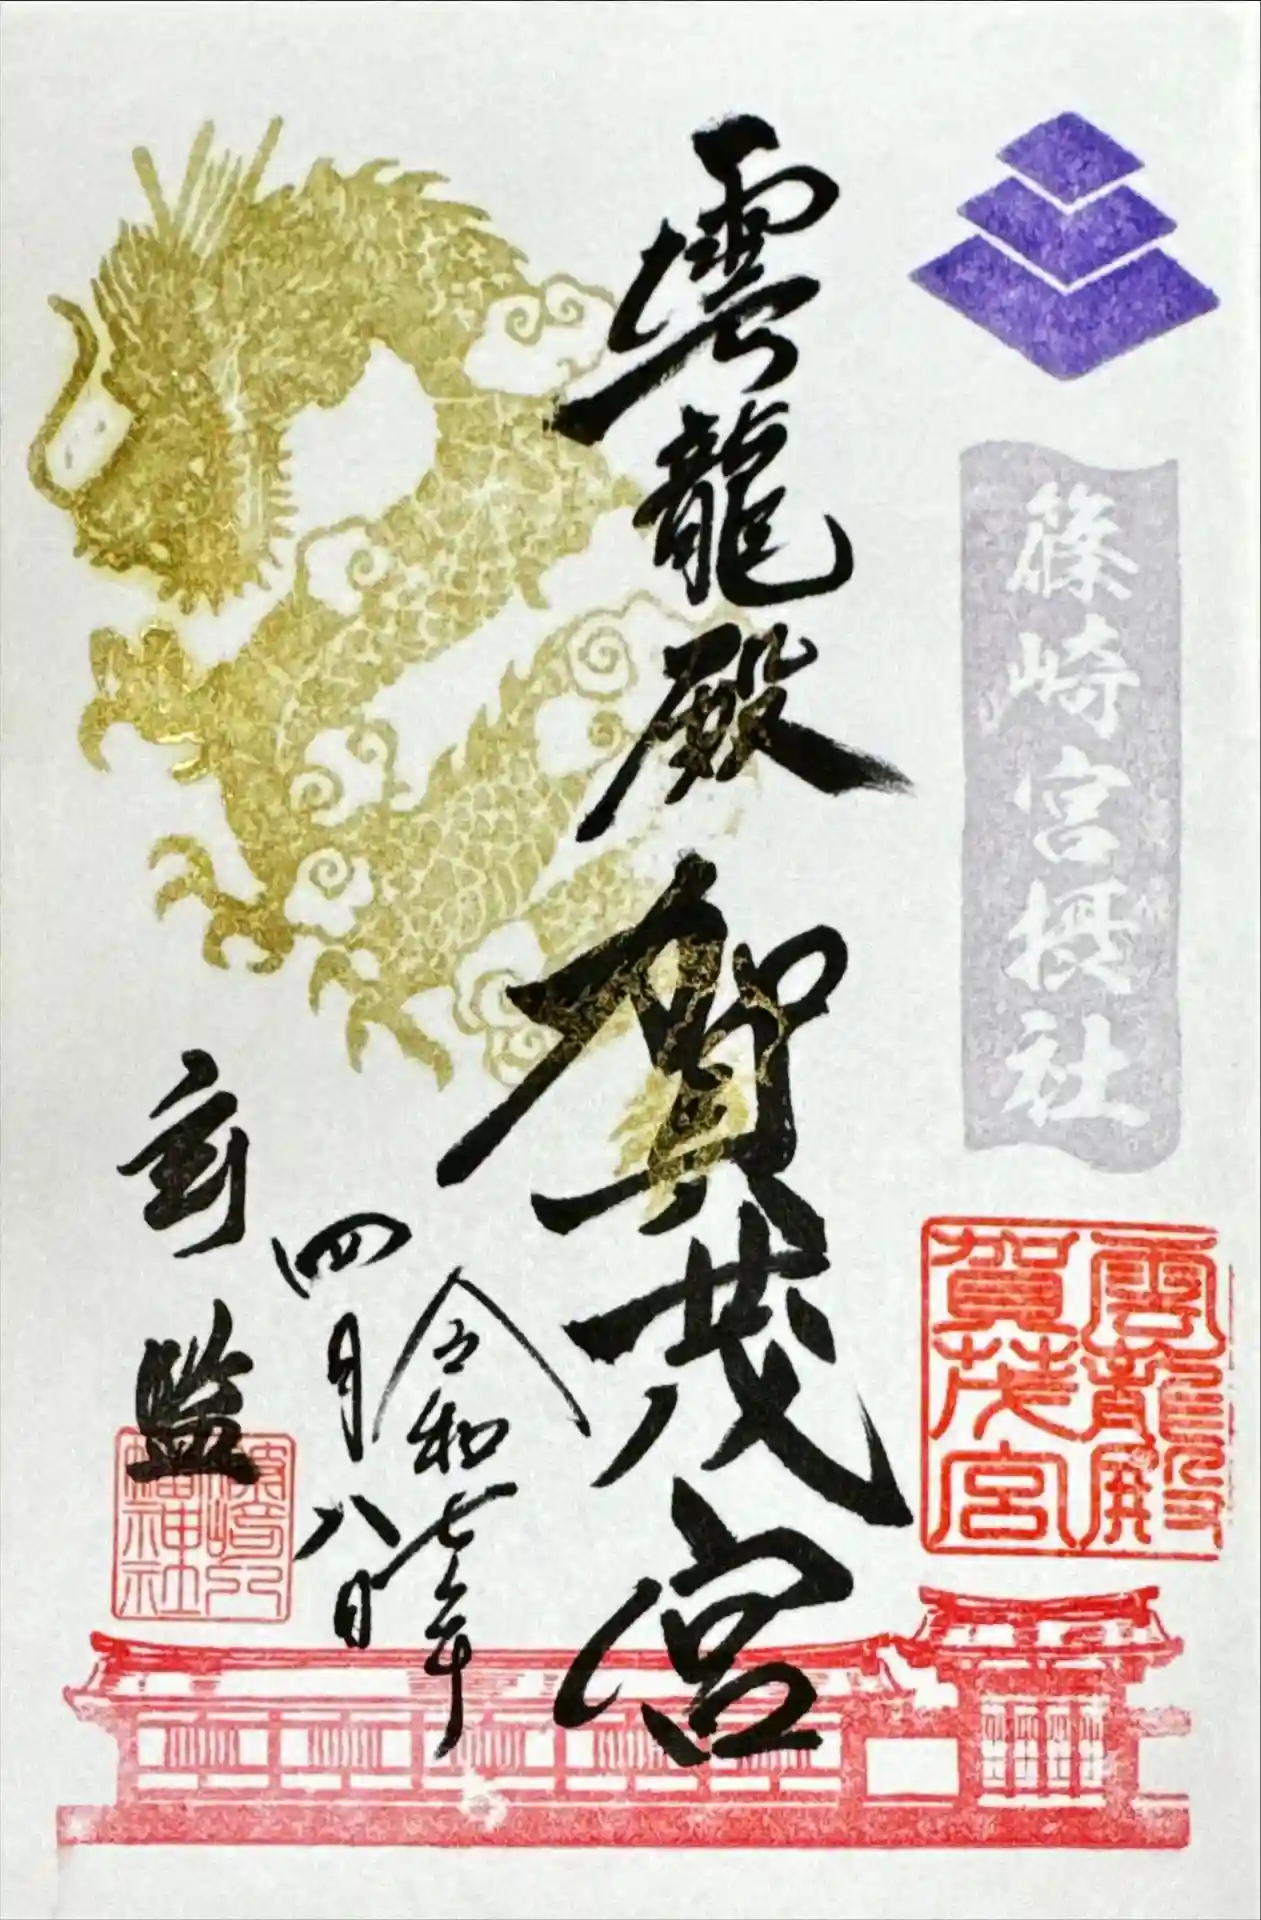 篠崎宮摂社
雲龍殿
賀茂宮
雲龍殿賀茂宮
令和七年
四月八日
監
篠崎八幡神社